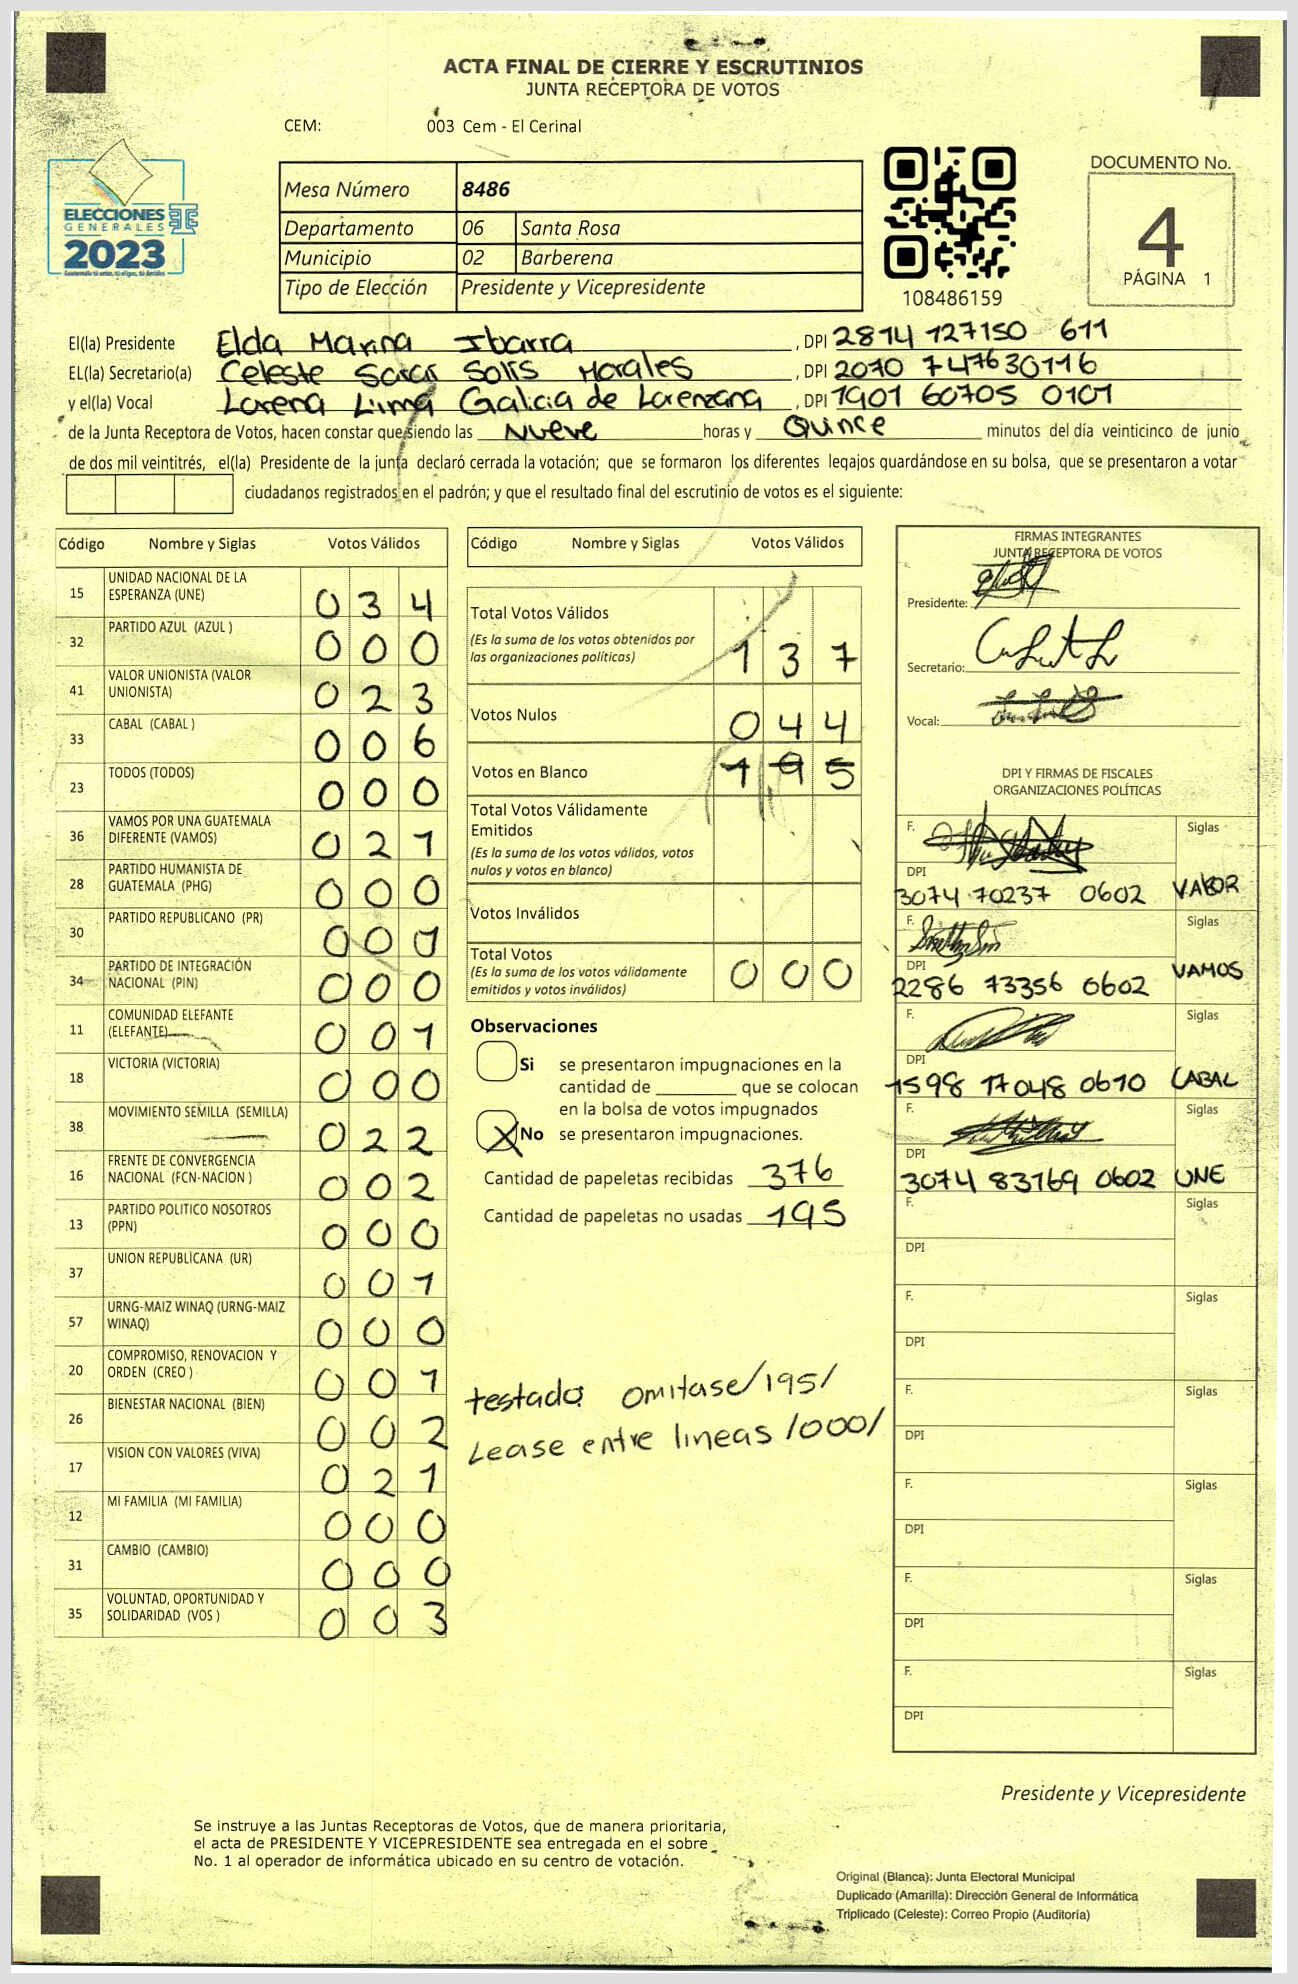 ACTA FINAL DE CIERRE Y ESCRUTINIOS
JUNTA RECEPTORA DE VOTOS
CEM: 003 Cem - El Cerinal
ELECCIONES
GENERALES
2023
Mesa Número 8486
Departamento 06 Santa Rosa
Municipio 02 Barberena
Tipo de Elección Presidente y Vicepresidente
108486159
DOCUMENTO No.
4
PÁGINA 1
El(la) Presidente Elda Marina Ibarra, DPI 2814 127150 611
EL(la) Secretario(a) Celeste Sarai Solis Morales, DPI 2070 747630116
y el(la) Vocal Lorena Lima Galicia de Lorenzana, DPI 1901 60705 0101
de la Junta Receptora de Votos, hacen constar que siendo las Nueve horas y Quince minutos del día veinticinco de junio
de dos mil veintitrés, el(la) Presidente de la junta declaró cerrada la votación; que se formaron los diferentes legajos guardándose en su bolsa, que se presentaron a votar
ciudadanos registrados en el padrón; y que el resultado final del escrutinio de votos es el siguiente:
Código Nombre y Siglas Votos Válidos
15 UNIDAD NACIONAL DE LA ESPERANZA (UNE) 0 3 4
32 PARTIDO AZUL (AZUL ) 0 0 0
41 VALOR UNIONISTA (VALOR UNIONISTA) 0 2 3
33 CABAL (CABAL ) 0 0 6
23 TODOS (TODOS) 0 0 0
36 VAMOS POR UNA GUATEMALA DIFERENTE (VAMOS) 0 2 1
28 PARTIDO HUMANISTA DE GUATEMALA (PHG) 0 0 0
30 PARTIDO REPUBLICANO (PR) 0 0 1
34 PARTIDO DE INTEGRACIÓN NACIONAL (PIN) 0 0 0
11 COMUNIDAD ELEFANTE (ELEFANTE) 0 0 1
18 VICTORIA (VICTORIA) 0 0 0
38 MOVIMIENTO SEMILLA (SEMILLA) 0 2 2
16 FRENTE DE CONVERGENCIA NACIONAL (FCN-NACION ) 0 0 2
13 PARTIDO POLITICO NOSOTROS (PPN) 0 0 0
37 UNION REPUBLICANA (UR) 0 0 1
57 URNG-MAIZ WINAQ (URNG-MAIZ WINAQ) 0 0 0
20 COMPROMISO, RENOVACION Y ORDEN (CREO ) 0 0 1
26 BIENESTAR NACIONAL (BIEN) 0 0 2
17 VISION CON VALORES (VIVA) 0 2 1
12 MI FAMILIA (MI FAMILIA) 0 0 0
31 CAMBIO (CAMBIO) 0 0 0
35 VOLUNTAD, OPORTUNIDAD Y SOLIDARIDAD (VOS ) 0 0 3
Código Nombre y Siglas Votos Válidos
Total Votos Válidos 1 3 7
(Es la suma de los votos obtenidos por
las organizaciones políticas)
Votos Nulos 0 4 4
Votos en Blanco 1 9 5
Total Votos Válidamente
Emitidos
(Es la suma de los votos válidos, votos
nulos y votos en blanco)
Votos Inválidos
Total Votos 0 0 0
(Es la suma de los votos válidamente
emitidos y votos inválidos)
Observaciones
Si se presentaron impugnaciones en la
cantidad de ________ que se colocan
en la bolsa de votos impugnados
X No se presentaron impugnaciones.
Cantidad de papeletas recibidas 376
Cantidad de papeletas no usadas 195
testado: omitase/195/
Lease entre lineas /000/
FIRMAS INTEGRANTES
JUNTA RECEPTORA DE VOTOS
Presidente:
Secretario:
Vocal:
DPI Y FIRMAS DE FISCALES
ORGANIZACIONES POLÍTICAS
F. Siglas
DPI
3074 70237 0602 VALOR
F. Siglas
DPI
2286 73356 0602 VAMOS
F. Siglas
DPI
1598 17048 0610 CABAL
F. Siglas
DPI
3074 83169 0602 UNE
F. Siglas
DPI
F. Siglas
DPI
F. Siglas
DPI
F. Siglas
DPI
F. Siglas
DPI
F. Siglas
DPI
Presidente y Vicepresidente
Se instruye a las Juntas Receptoras de Votos, que de manera prioritaria,
el acta de PRESIDENTE Y VICEPRESIDENTE sea entregada en el sobre
No. 1 al operador de informática ubicado en su centro de votación.
Original (Blanca): Junta Electoral Municipal
Duplicado (Amarilla): Dirección General de Informática
Triplicado (Celeste): Correo Propio (Auditoría)